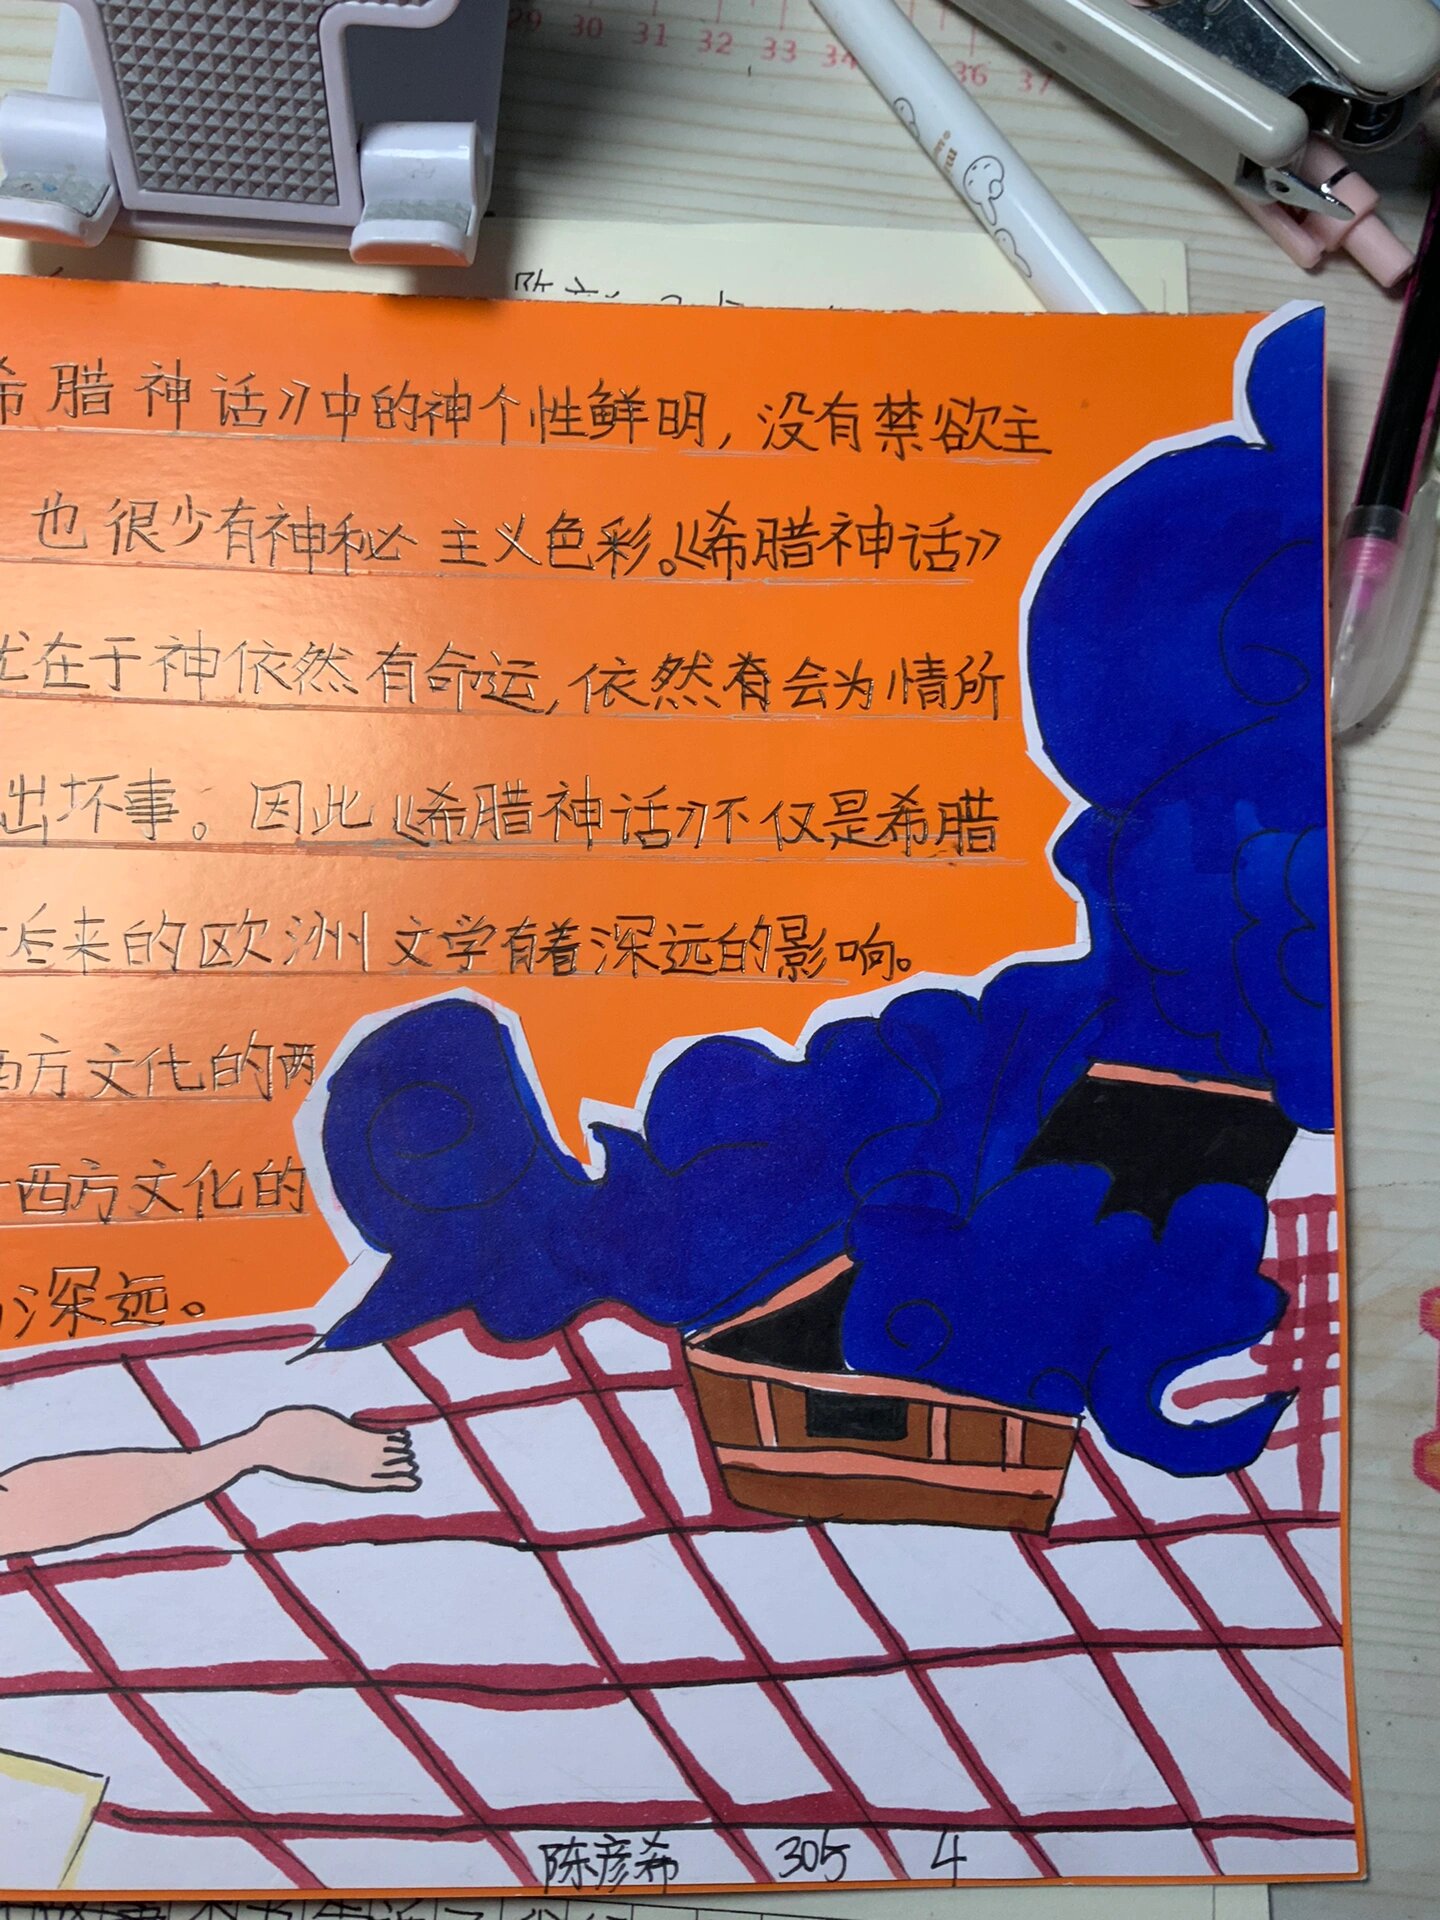 29 30 31 32 33 34 36 37
希腊神话》中的神个性鲜明，没有禁欲主
也很少有神秘主义色彩。《希腊神话》
在于神依然有命运，依然有会为情所
出坏事。因此《希腊神话》不仅是希腊
后来的欧洲文学有着深远的影响。
西方文化的两
西方文化的
深远。
陈彦希 305 4